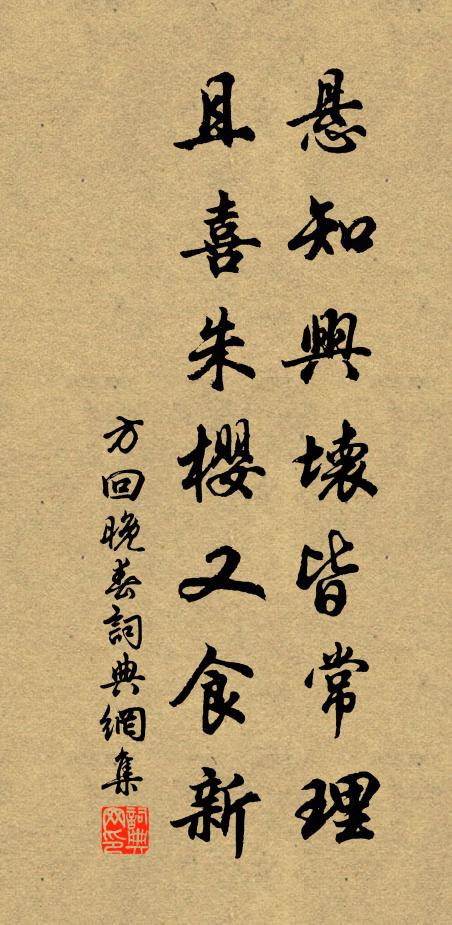 悬知興壊皆常理
且喜朱櫻又食新
方回晚春詞典網集
詞典网印